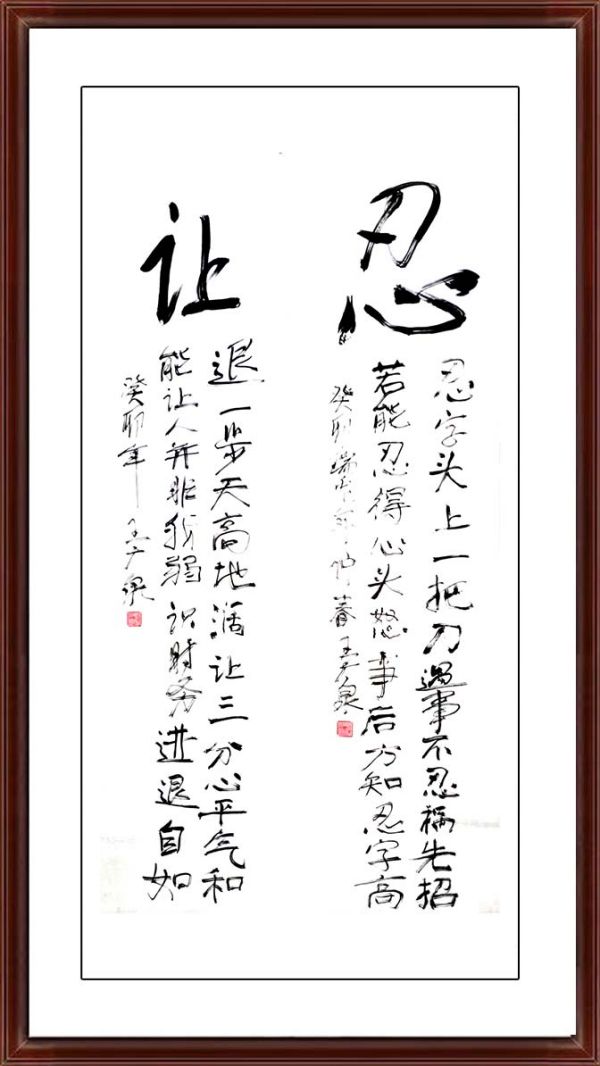 忍
忍字头上一把刀遇事不忍祸先招
若能忍得心头怒事后方知忍字高
癸卯
让
退一步天高地阔让三分心平气和
能让人并非我弱识时务进退自如
癸卯年